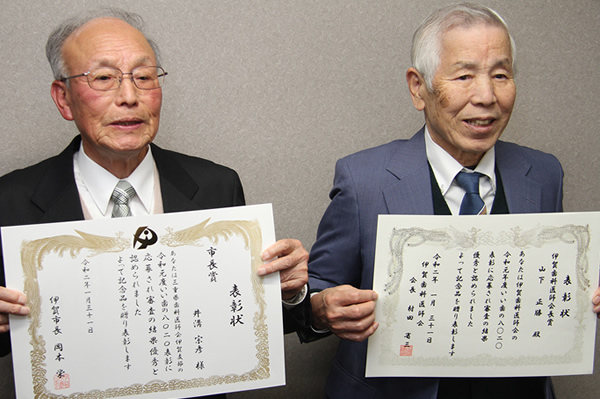 表彰状
市長賞
井溝 宗彦 様
あなたは三重県歯科医師会伊賀支部の
令和元年度いい歯の8020表彰に
応募され審査の結果優秀と
認められました
よって記念品を贈り表彰します
令和二年一月三十一日
伊賀市長 岡本 栄
表彰状
伊賀歯科医師会長賞
山下 正勝 殿
あなたは伊賀歯科医師会の
令和元年度いい歯の8020
表彰に応募され審査の結果
優秀と認められました
よって記念品を贈り表彰します
令和二年 一月 三十一日
伊賀歯科医師会
会長 村田 省三